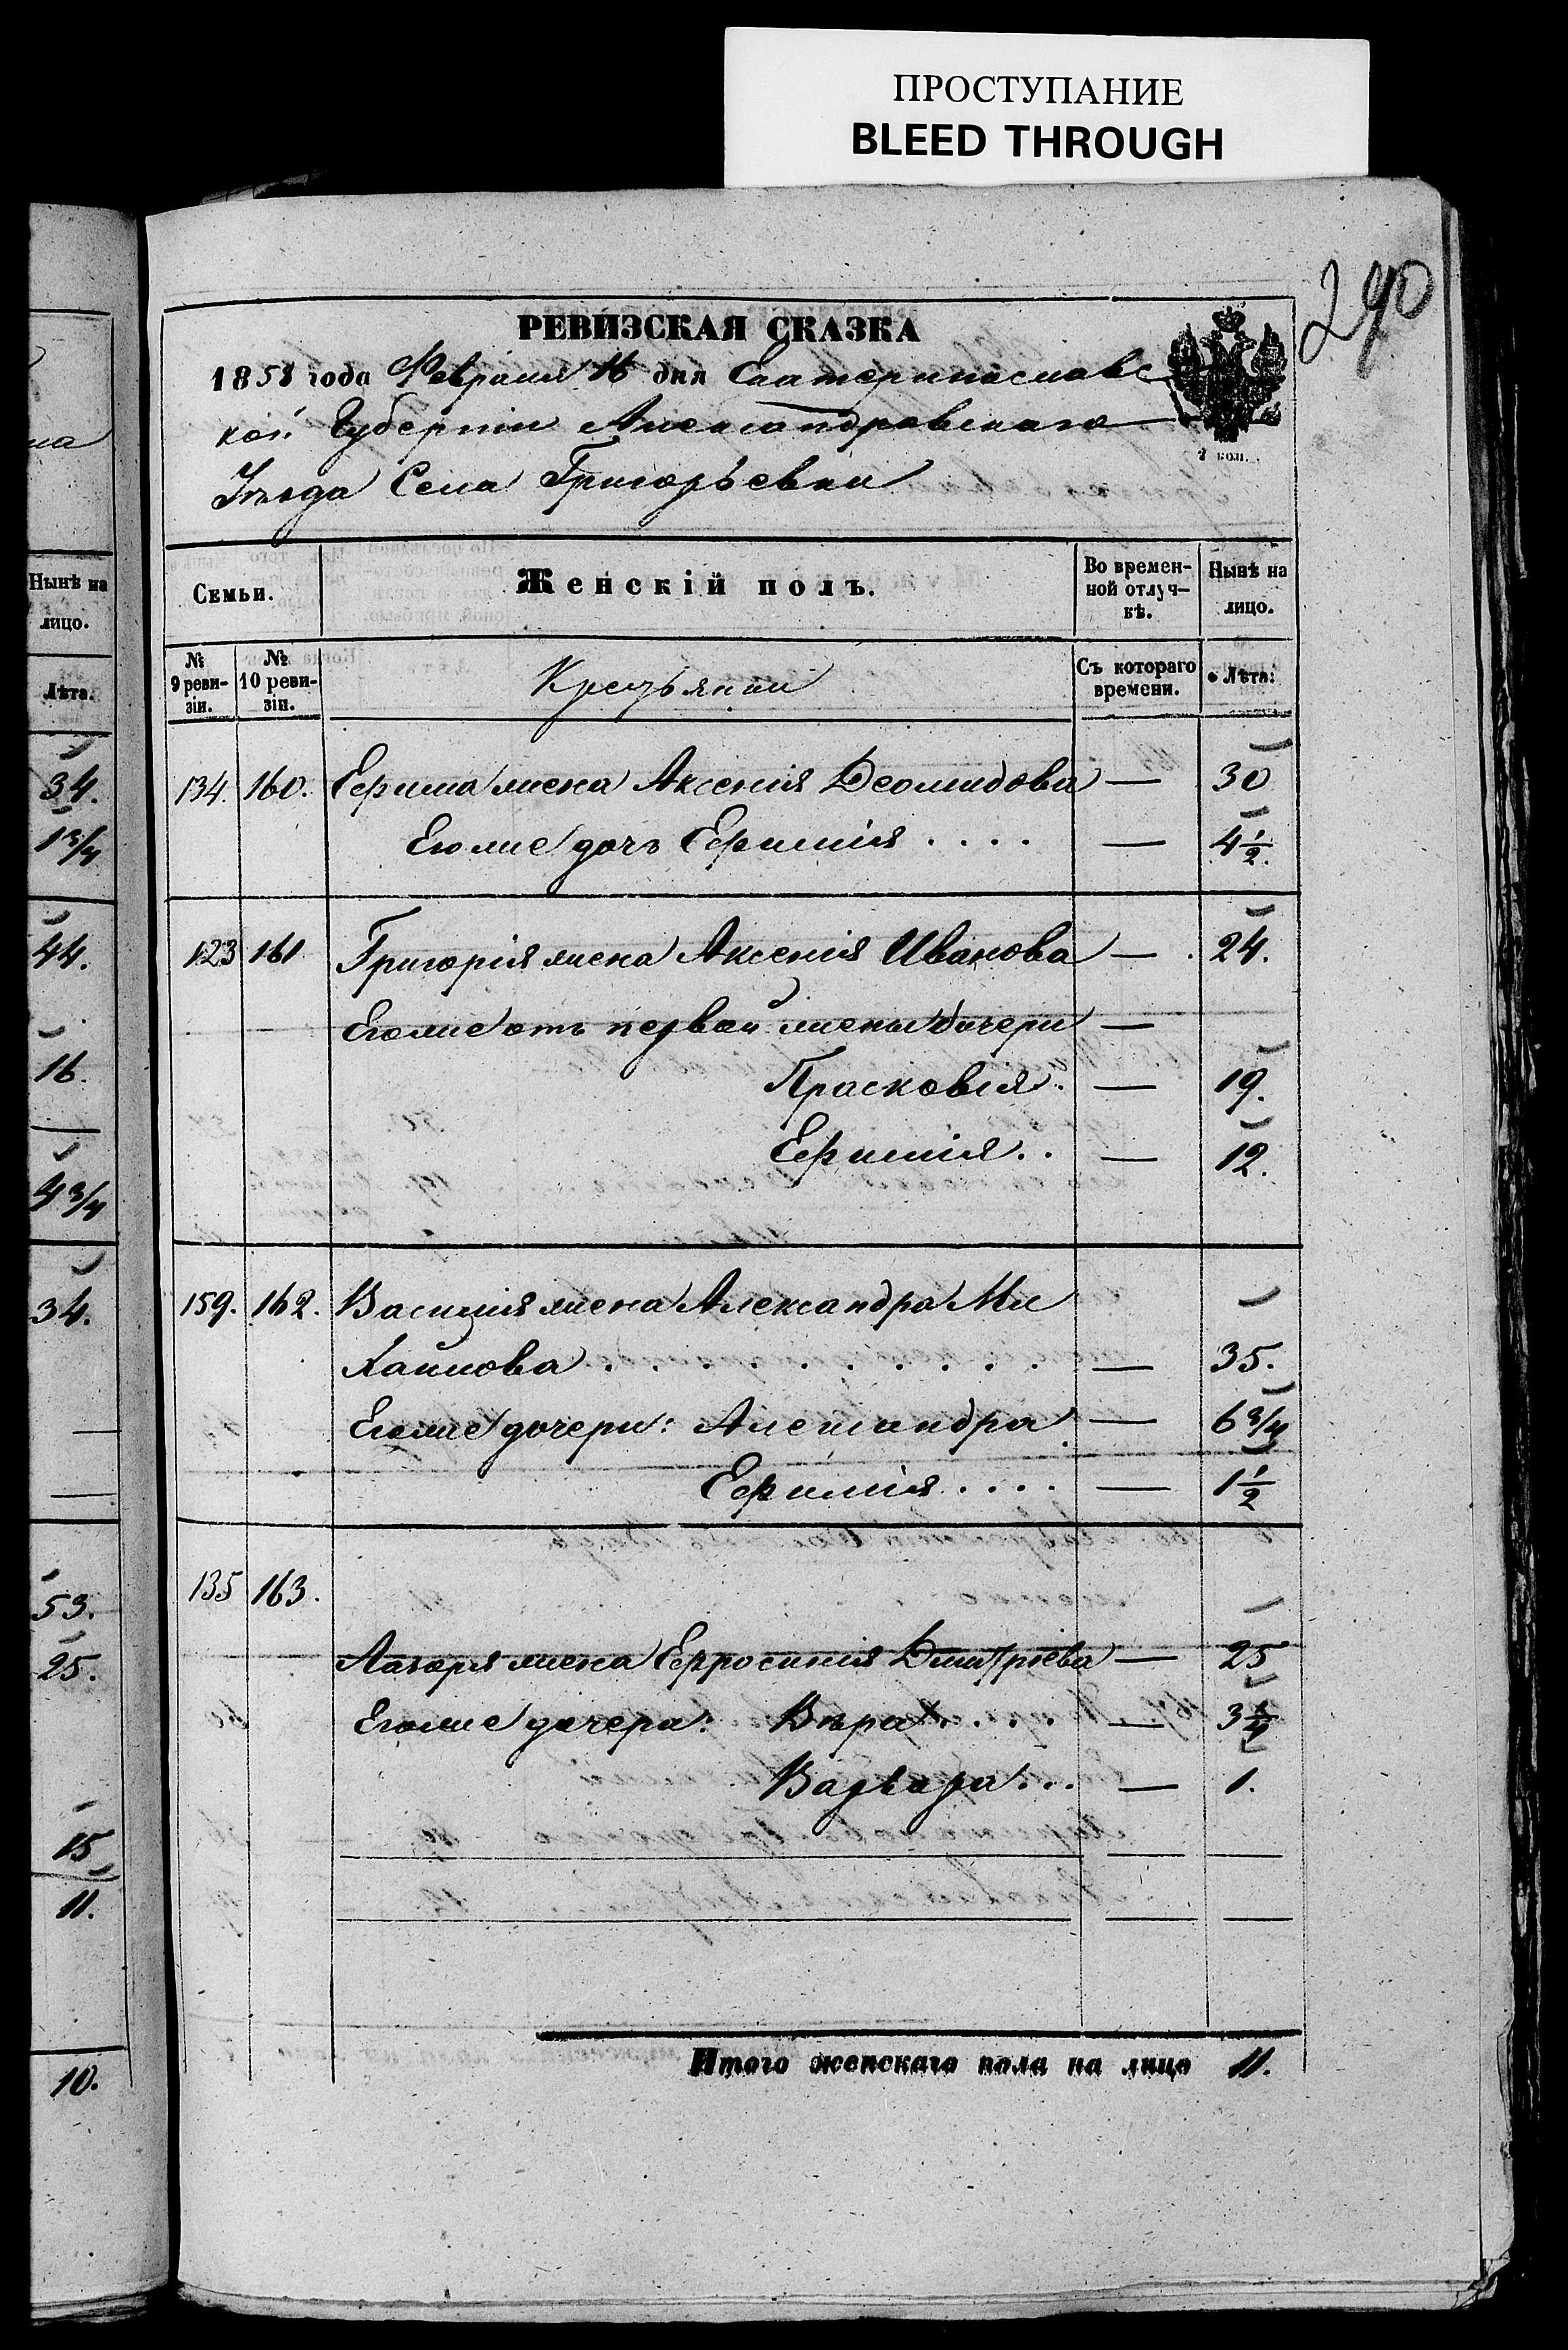 ПРОСТУПАНИЕ
BLEED THROUGH
290
РЕВИЗСКАЯ СКАЗКА
1858 года Февраля 16 дня Екатеринославс
кой Губерніи Александровскаго
Уѣзда Села Григорьевки
2 коп.
Семьи.
Женскій полъ.
Во времен-
ной отлуч-
кѣ.
Нынѣ на
лицо.
№ 9 реви-
зіи.
№ 10 реви-
зіи.
Крестьянки
Съ котораго
времени.
Лѣта:
134. 160. Ефима жена Аксенія Деомидова — 30
Егоже дочь Ефимія . . . . — 4 1/2.
123 161 Григорія жена Аксенія Иванова — 24.
Егоже отъ первой жены дочери —
Прасковія. — 19.
Ефимія . . — 12.
159. 162. Василія жена Александра Ми
хайлова . . . . . . . . . — 35.
Егоже дочери: Александра — 6 3/4
Ефимія . . . . — 1 1/2
135 163.
Лазоря жена Ефросинія Дмитріева — 25
Егоже дочери: Вѣра . . . . —
Варвара . . . — 1.
Итого женскаго пола на лицо 11.
на
Нынѣ на
лицо.
Лѣта.
34.
1 3/4
44.
16.
4 3/4
34.
53.
25.
15
11.
10.